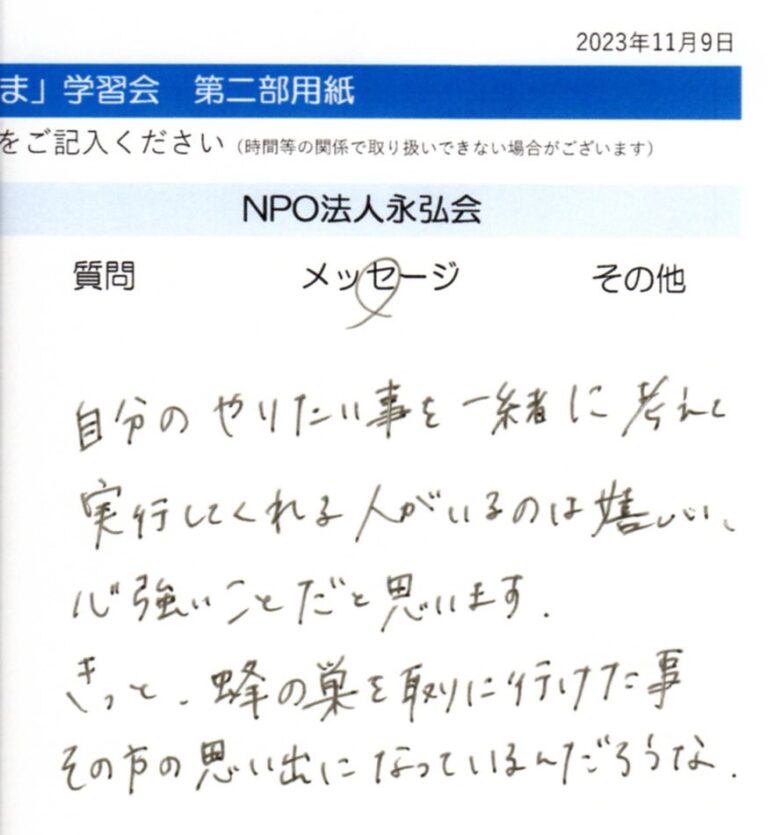 2023年11月9日
ま」学習会 第二部用紙
をご記入ください（時間等の関係で取り扱いできない場合がございます）
NPO法人永弘会
質問 メッセージ その他
自分のやりたい事を一緒に考えて
実行してくれる人がいるのは嬉しい、
心強いことだと思います.
きっと、蜂の巣を取りに行けた事
その方の思い出になっているんだろうな.